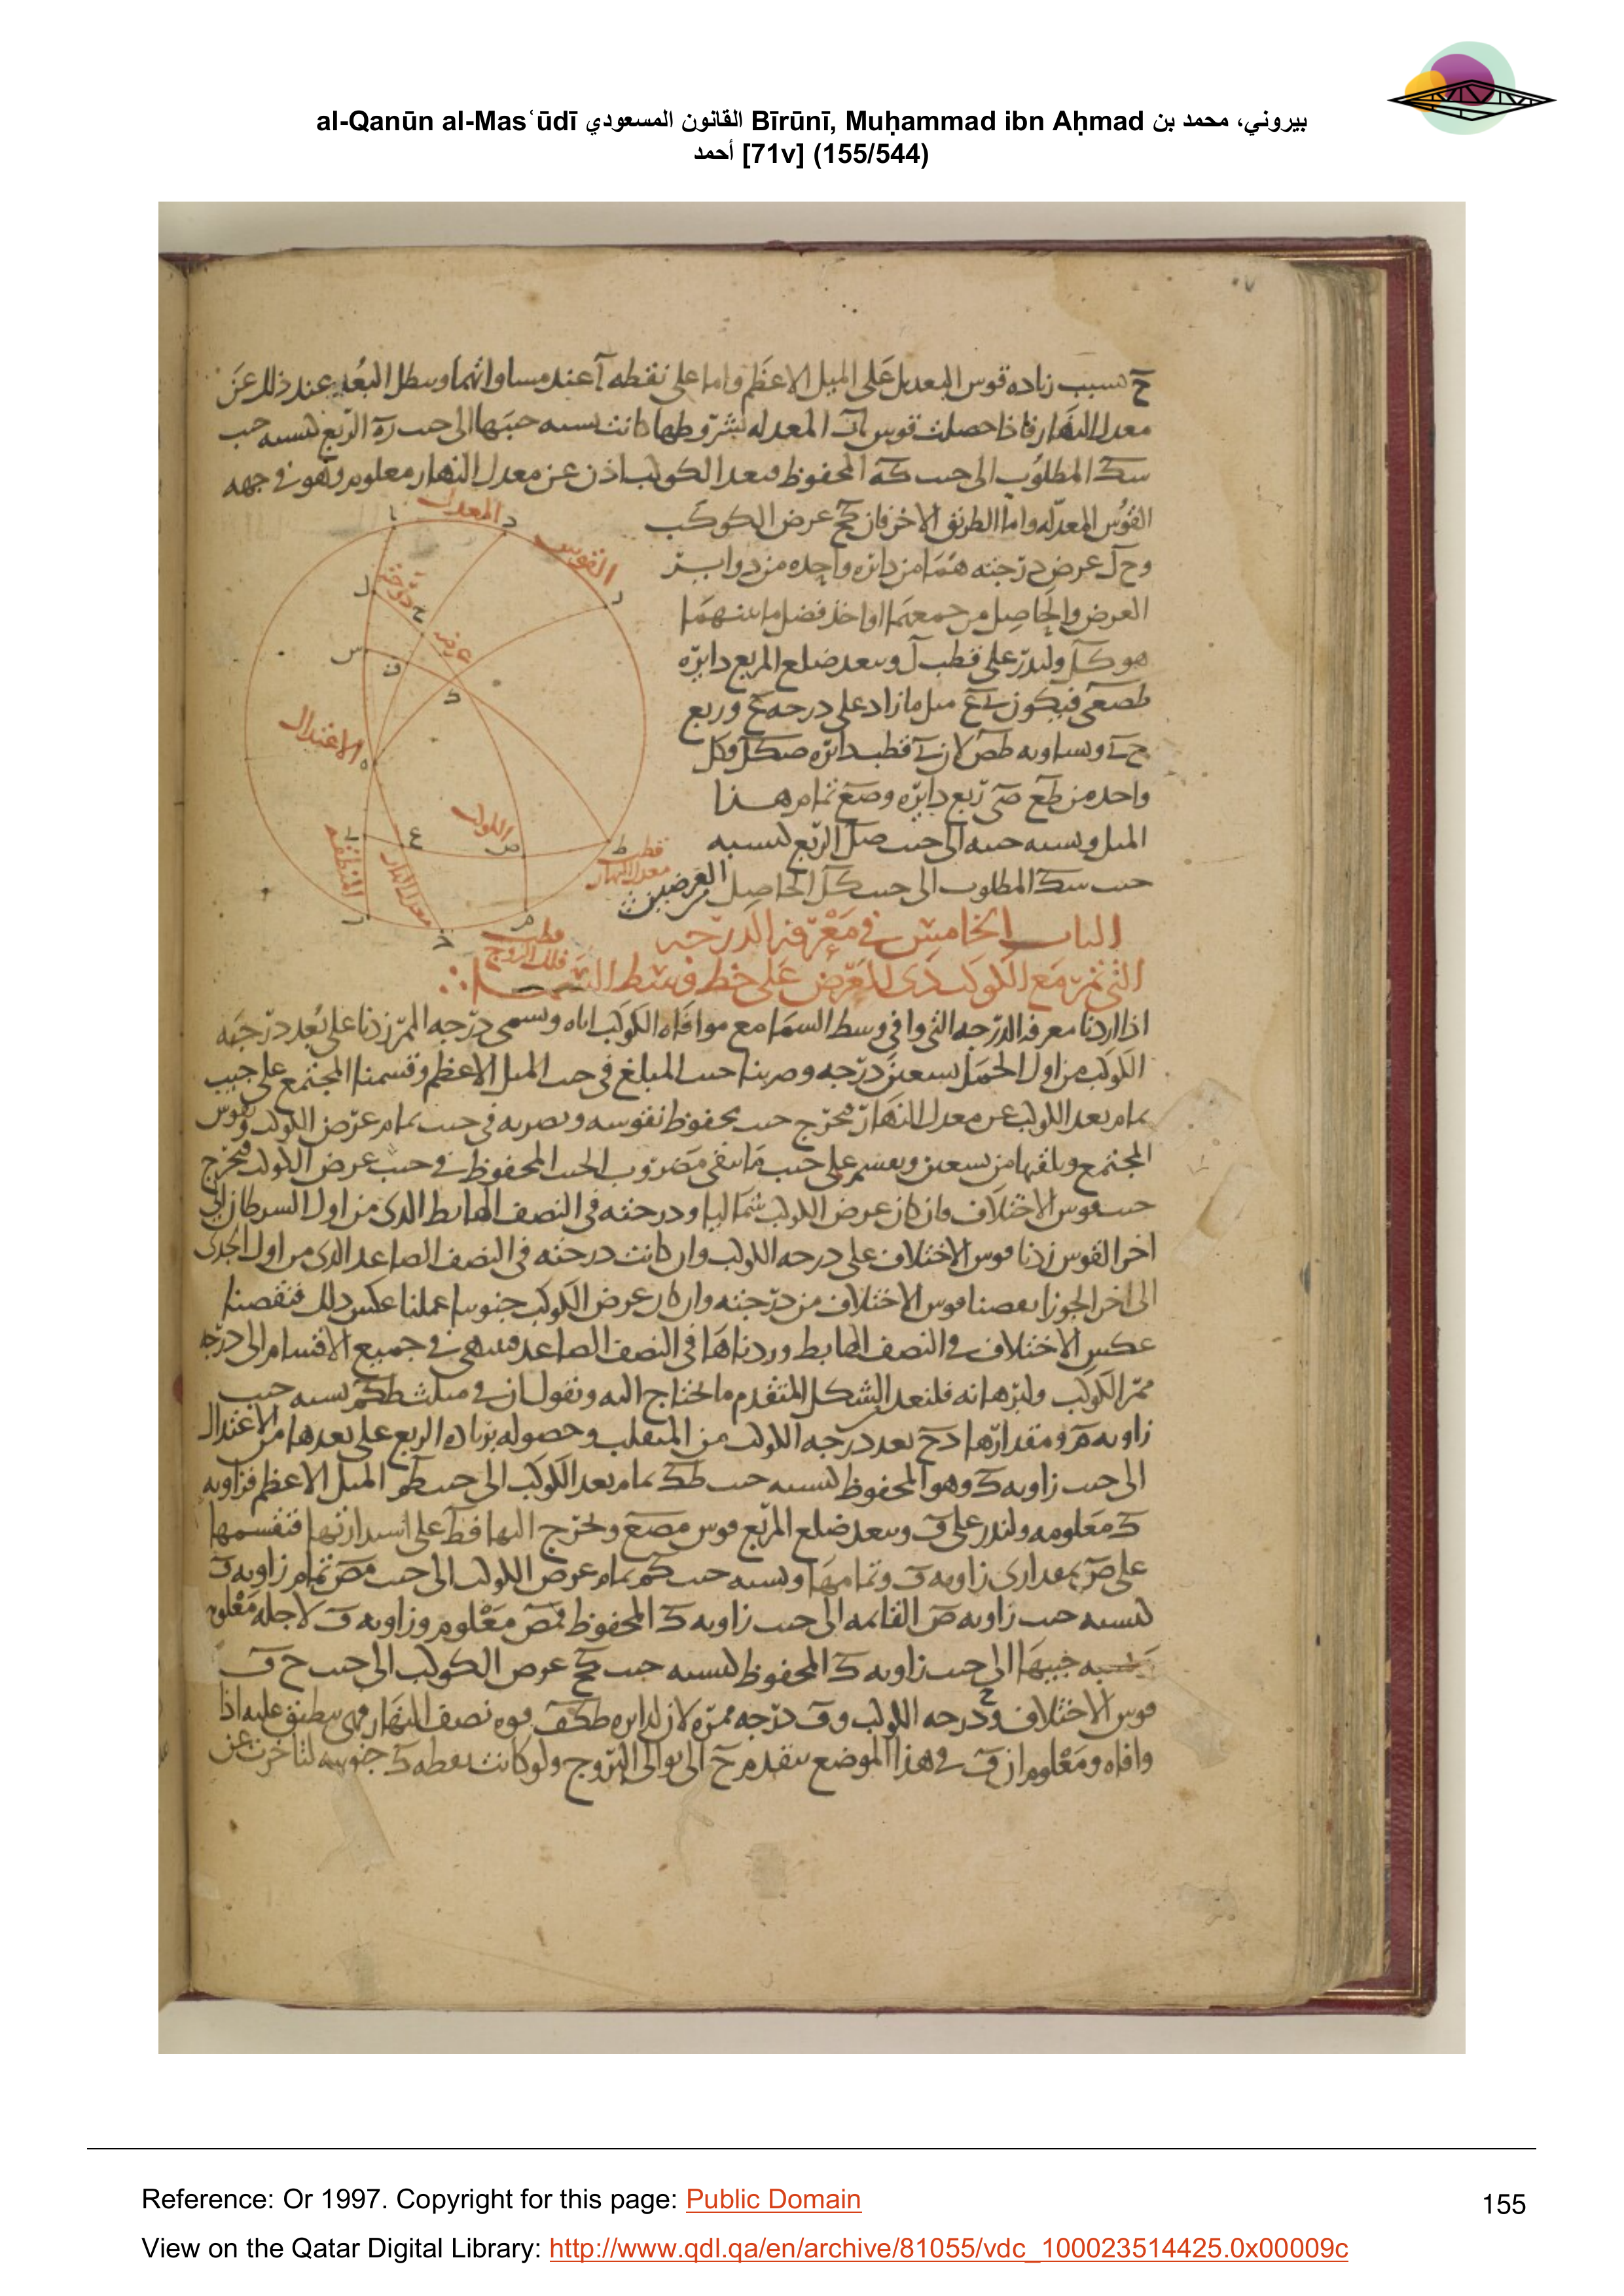 al-Qanūn al-Masʿūdī القانون المسعودي Bīrūnī, Muḥammad ibn Aḥmad بيروني، محمد بن
أحمد [71v] (155/544)
ح بسبب زياده قوس التعديل على الميل الاعظم واما على نقطه آ عند مساواتهما وسطل البعد عند ذلك عن
معدل النهار فاذا حصلت قوس المعدله بشروطها كانت نسبه جيبها الى جيب ره الربع كنسبه جيب
سك المطلوب الى جيب كه المحفوظ فبعد الكوكب اذن عن معدل النهار معلوم وهو في جهه
القوس المعدله واما الطريق الاخر فان كح عرض الكوكب
وحل عرض درجته هما من دائره واحده من دوابر
العرض والحاصل من جمعهما او اخذ فضل ما بينهما
هو كل ولندر على قطب ل وببعد ضلع المربع دايره
طصعى فيكون ىع ميل ما زاد على درجه ح وربع
حى وساويه طص لان ى قطب دائره صكل وكل
واحد من طع صى ربع دايره وصع تمام هذا
الميل ونسبه جيبه الى جيب صل الربع كنسبه
جيب سك المطلوب الى جيب كل الحاصل من العرضين
المعدل
القوس
درجته
عرض
الاعتدال
الكوكب
المنطقه
معدل النهار
قطب
معدل النهار
قطب
فلك البروج
الباب الخامس في معرفه الدرجه
التي تمر مع الكوكب ذى العرض على خط وسط السما
اذا اردنا معرفه الدرجه التي توافى وسط السما مع موافاه الكوكب اياه وتسمى درجه الممر زدنا على بعد درجه
الكوكب من اول الحمل تسعين درجه وضربنا جيب المبلغ في جيب الميل الاعظم وقسمنا المجتمع على جيب
تمام بعد الكوكب عن معدل النهار فيخرج جيب محفوظ نقوسه ونضربه في جيب تمام عرض الكوكب ونقوس
المجتمع ونلقيها من تسعين ونقسم على جيب ما يبقى مضروب الجيب المحفوظ في جيب عرض الكوكب فيخرج
جيب قوس الاختلاف فان كان عرض الكوكب شماليا ودرجته في النصف الهابط الذى من اول السرطان الى
اخر القوس زدنا قوس الاختلاف على درجه الكوكب وان كانت درجته في النصف الصاعد الذى من اول الجدى
الى اخر الجوزا نقصنا قوس الاختلاف من درجته وان كان عرض الكوكب جنوبيا عملنا عكس ذلك فنقصنا
عكس الاختلاف في النصف الهابط وزدناها في النصف الصاعد فننتهى في جميع الاقسام الى درجه
ممر الكوكب ولبرهانه فلنعد الشكل المتقدم ما نحتاج اليه ونقول ان في مثلث طكم نسبه جيب
زاويه م ومقدارها دح بعد درجه الكوكب من المنقلب وحصوله بزياده الربع على بعدها من الاعتدال
الى جيب زاويه ك وهو المحفوظ كنسبه جيب طك تمام بعد الكوكب الى جيب طم الميل الاعظم فزاويه
ك معلومه ولندر على ف وببعد ضلع المربع قوس مصع ونخرج اليها فط على استدارتها فتقسمها
على ص بمقدارى زاويه ف وتمامها ونسبه جيب كم تمام عرض الكوكب الى جيب مص تمام زاويه ف
كنسبه جيب زاويه ص القائمه الى جيب زاويه ك المحفوظ فمص معلوم وزاويه ف لاجله معلومه
نسبه جيبها الى جيب زاويه ك المحفوظ كنسبه جيب كح عرض الكوكب الى جيب ح ف
قوس الاختلاف وح درجه الكوكب وف درجه ممره لان لدايره طكف قوه نصف النهار فهى تنطبق عليه اذا
وافاه ومعلوم ان ف في هذا الموضع يتقدم ح الى توالى البروج ولو كانت نقطه ك جنوبيه لتاخرت عن
Reference: Or 1997. Copyright for this page: Public Domain
155
View on the Qatar Digital Library: http://www.qdl.qa/en/archive/81055/vdc_100023514425.0x00009c